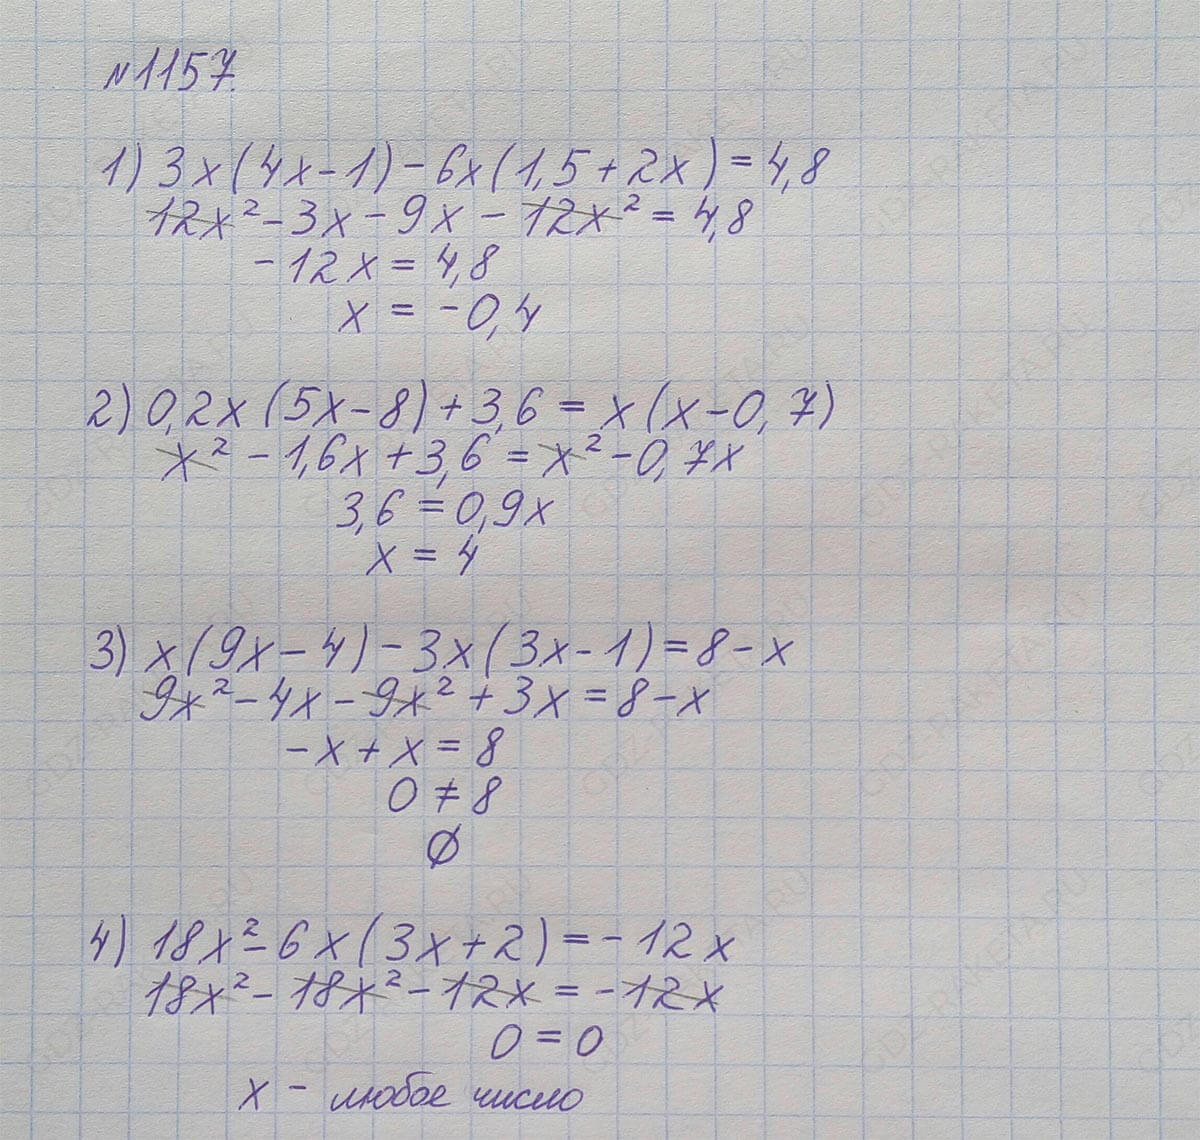 №1157.
1) 3x(4x-1)-6x(1,5+2x)=4,8
12x²-3x-9x-12x²=4,8
-12x=4,8
x=-0,4
2) 0,2x(5x-8)+3,6=x(x-0,7)
x²-1,6x+3,6=x²-0,7x
3,6=0,9x
x=4
3) x(9x-4)-3x(3x-1)=8-x
9x²-4x-9x²+3x=8-x
-x+x=8
0≠8
∅
4) 18x²-6x(3x+2)=-12x
18x²-18x²-12x=-12x
0=0
x - любое число
GDZ-RAKETA.RU